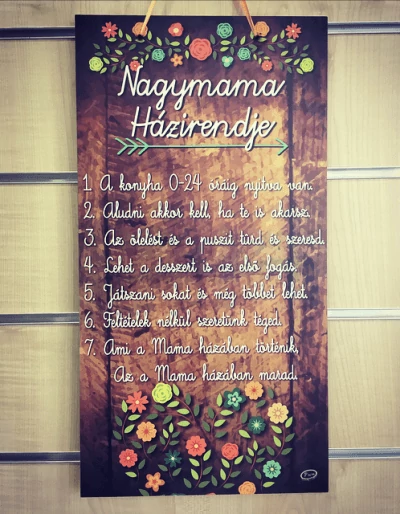 Nagymama
Házirendje
1. A konyha 0-24 óráig nyitva van.
2. Aludni akkor kell, ha te is akarsz.
3. Az ölelést és a puszit tűrd és szeresd.
4. Lehet a desszert is az első fogás.
5. Játszani sokat és még többet lehet.
6. Feltételek nélkül szeretünk téged.
7. Ami a Mama házában történik,
Az a Mama házában marad.